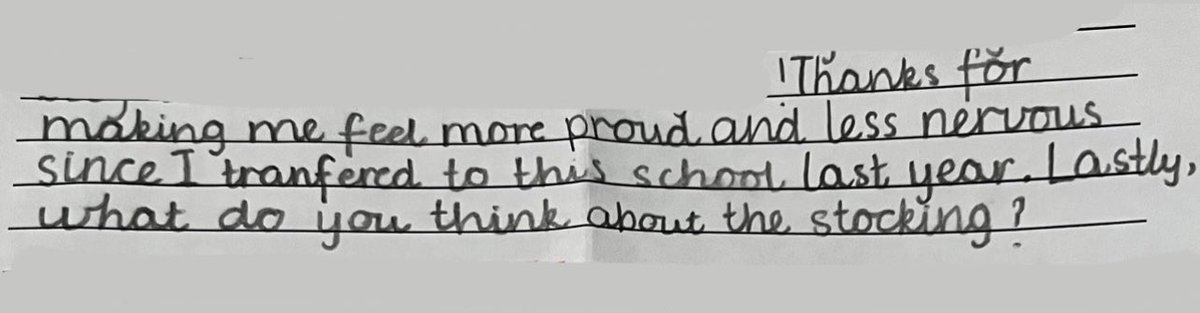 Thanks for
making me feel more proud and less nervous
since I tranfered to this school last year. Lastly,
what do you think about the stocking?